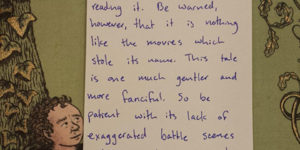 reading it. Be warned,
however, that it is nothing
like the movies which
stole its name. This tale
is one much gentler and
more fanciful. So be
patient with its lack of
exaggerated battle scenes